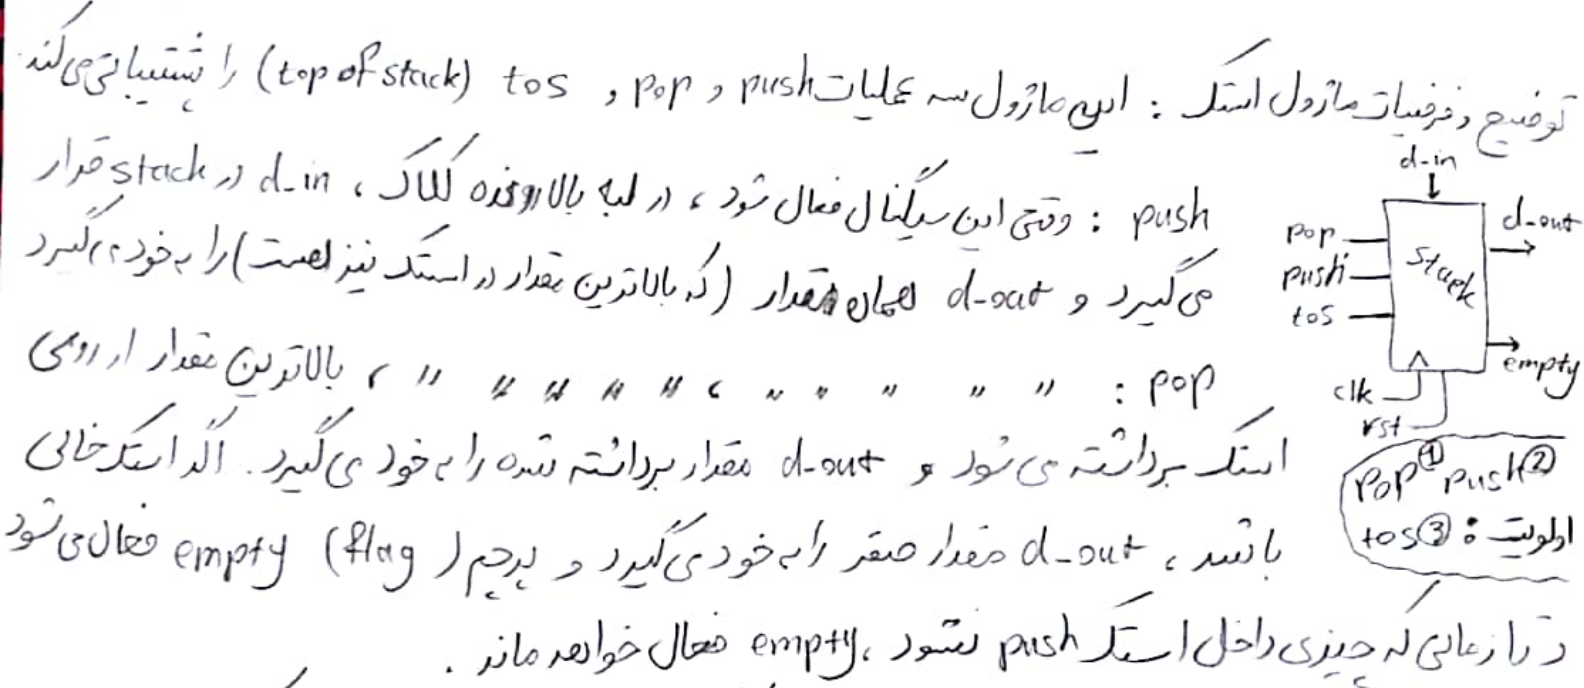 توضیح و فرضیات ماژول استک : این ماژول سه عملیات push و pop و tos (top of stack) را پشتیبانی می کند.
push : وقتی این سیگنال فعال شود ، در لبه بالارونده کلاک ، d-in در stack قرار
می گیرد و d-out همان مقدار (که بالاترین مقدار در استک نیز هست) را به خود می گیرد
pop : " " " " " ، " " " " " " ، بالاترین مقدار از روی
استک برداشته می شود و d-out مقدار برداشته شده را به خود می گیرد. اگر استک خالی
باشد ، d-out مقدار صفر را به خود می گیرد و پرچم (flag) empty فعال می شود
و تا زمانی که چیزی داخل استک push نشود ، empty فعال خواهد ماند .
d-in
pop
push
tos
stack
d-out
empty
clk
rst
pop ① push ②
اولویت : tos ③